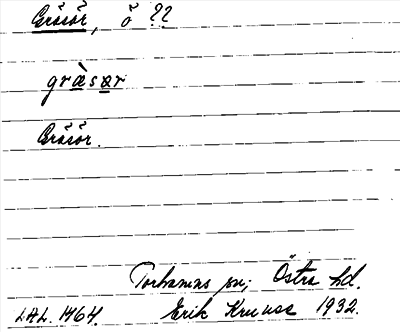 Gräsör, ö ??
gràsər
Gräsör.
Torhamns sn; Östra hd.
LAL. 1464. Erik Kruuse 1932.